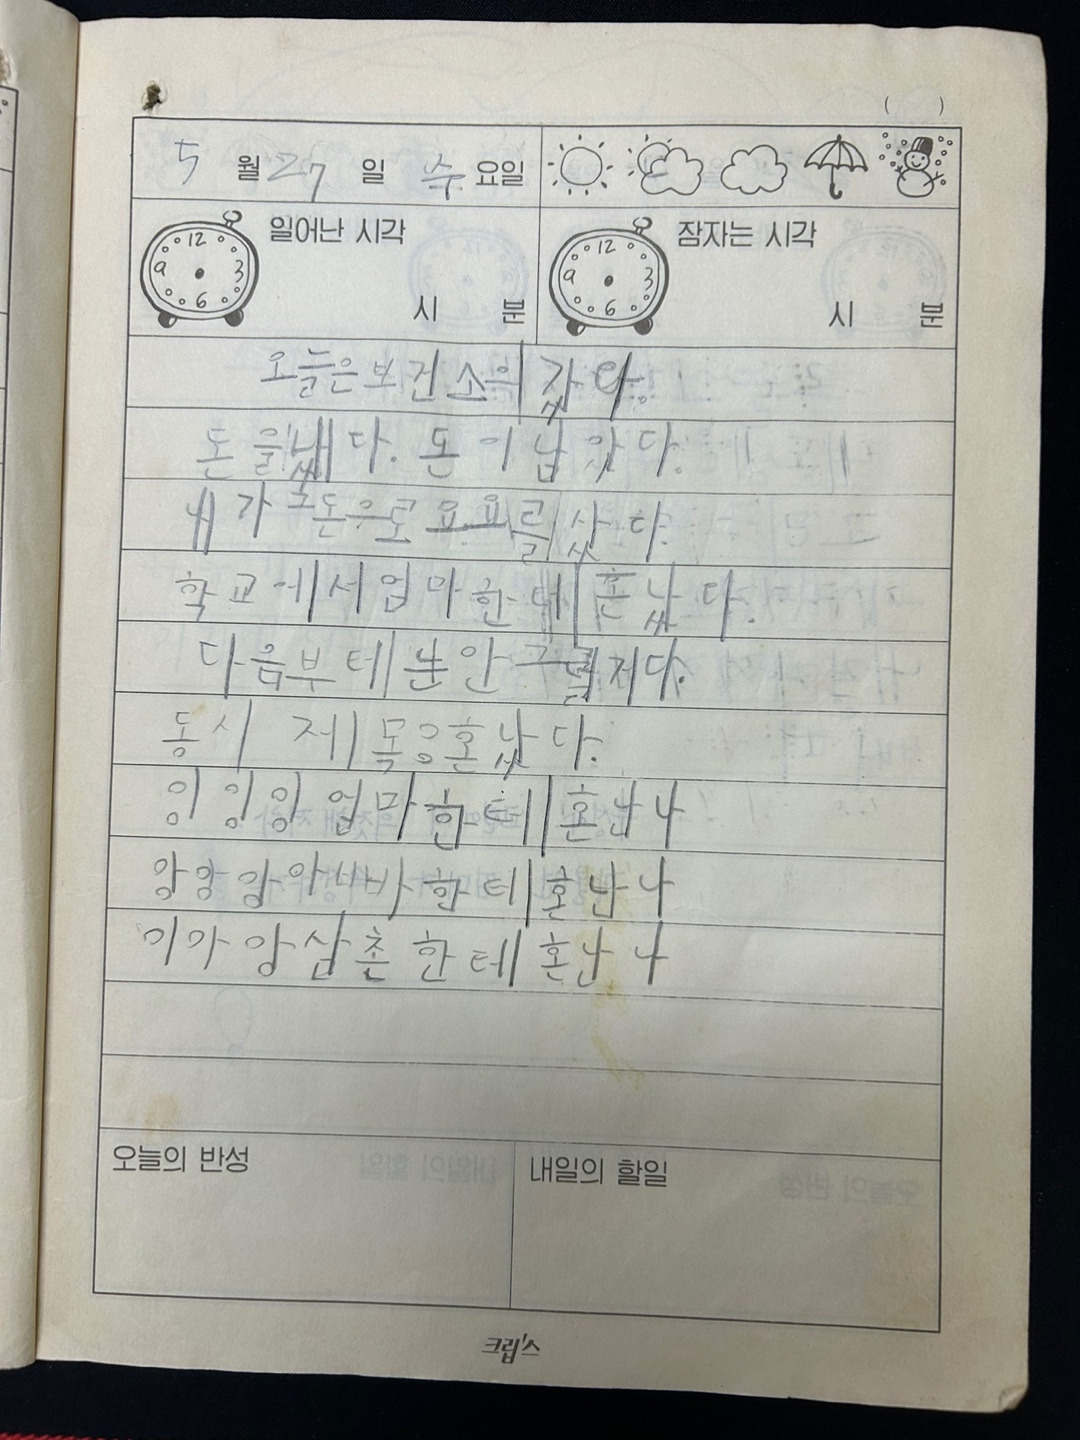 ( )
5 월 27 일 수 요일
일어난 시각 잠자는 시각
12 3 6 9 12 3 6 9
시 분 시 분
오늘은 보건소의 갔다.
돈을 냈다. 돈이 남았다.
내가 그돈으로 요요를 샀다.
학교에서 엄마한테 혼났다.
다음부테 눈안
동시 제목응혼났다.
잉잉잉 엄마한테 혼난나
앙앙앙 아빠한테 혼난나
이가앙 삼촌한테 혼난나
오늘의 반성 내일의 할일
크립스